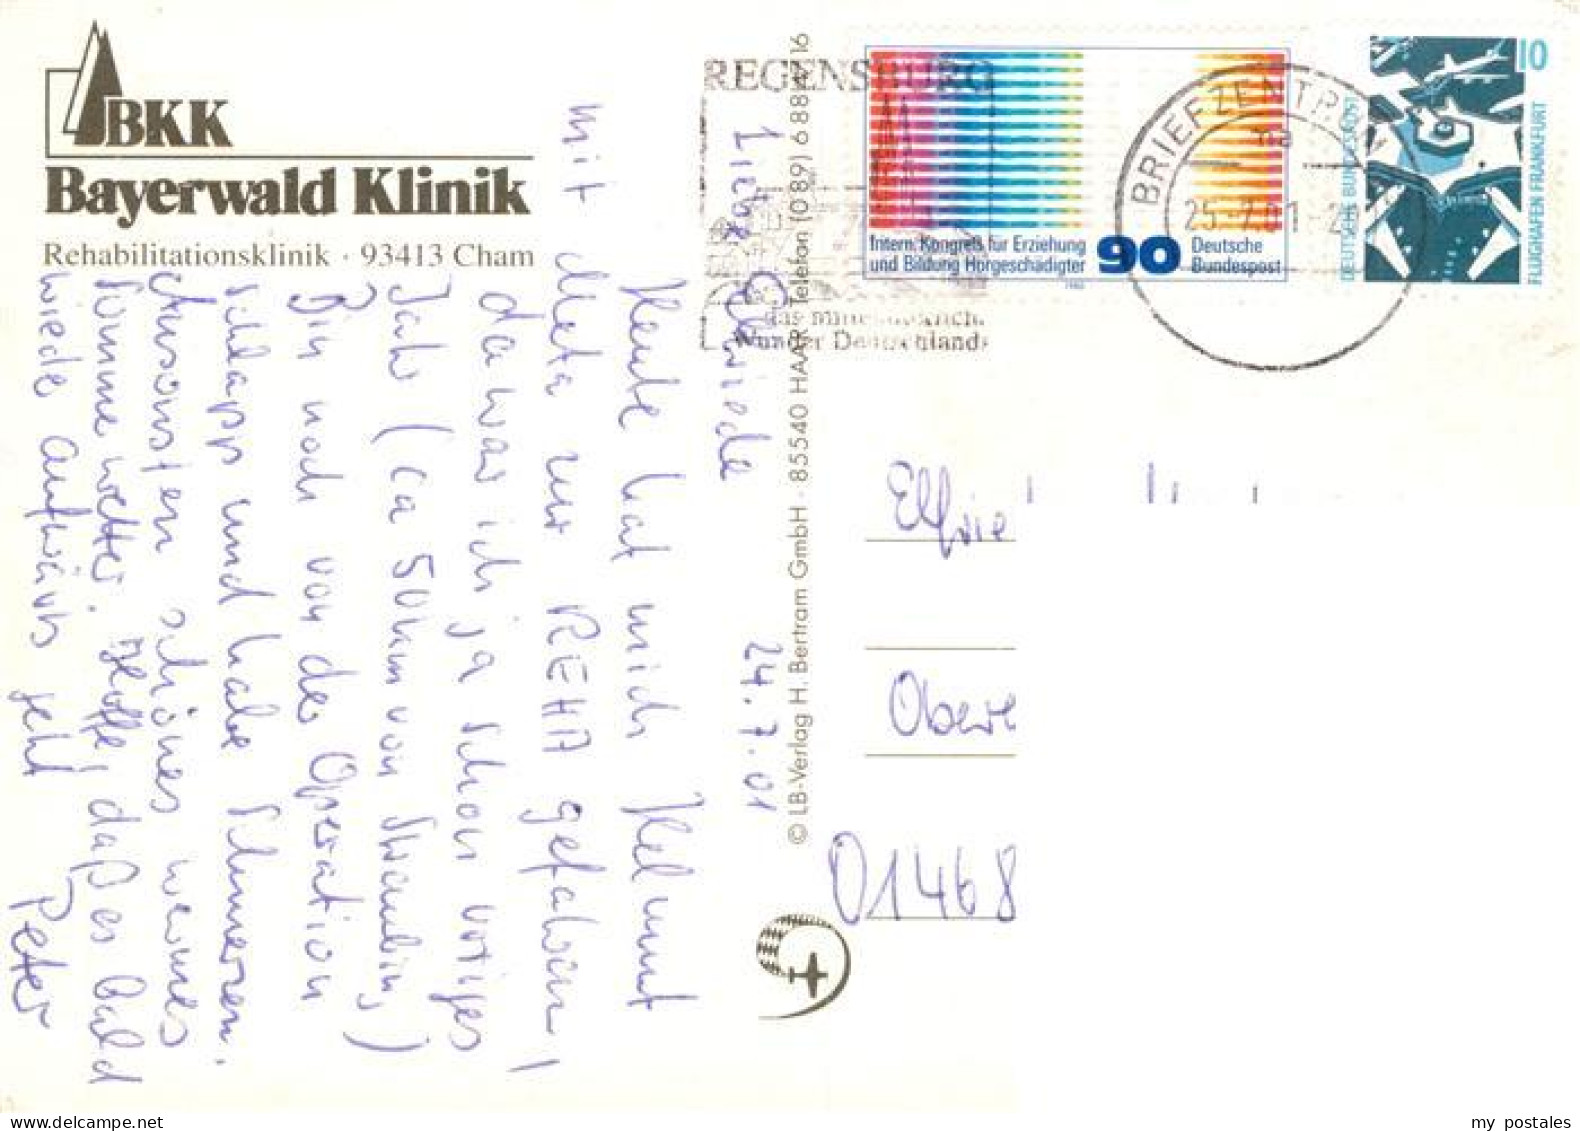 BKK
Bayerwald Klinik
Rehabilitationsklinik · 93413 Cham
Liebe Elfriede 24.7.01
Heute hat mich Helmut
mit Meta zur REHA gefahren,
da war ich ja schon voriges
Jahr (ca 50km von Straubing)
Bin noch von der Operation
schlapp und habe Schmerzen.
Ansonsten schönes warmes
Sommerwetter. Hoffe, daß es bald
wieder aufwärts geht Peter
© LB-Verlag H. Bertram GmbH · 85540 HAAR · Telefon (089) 6 88 74 16
REGENSBURG
das mittelalterliche
Wunder Deutschlands
Intern. Kongreß für Erziehung
und Bildung Hörgeschädigter
90
Deutsche
Bundespost
1980
BRIEFZENTRUM
25.-7.01
10
DEUTSCHE BUNDESPOST
FLUGHAFEN FRANKFURT
Elfrie
Obere
01468
my postales